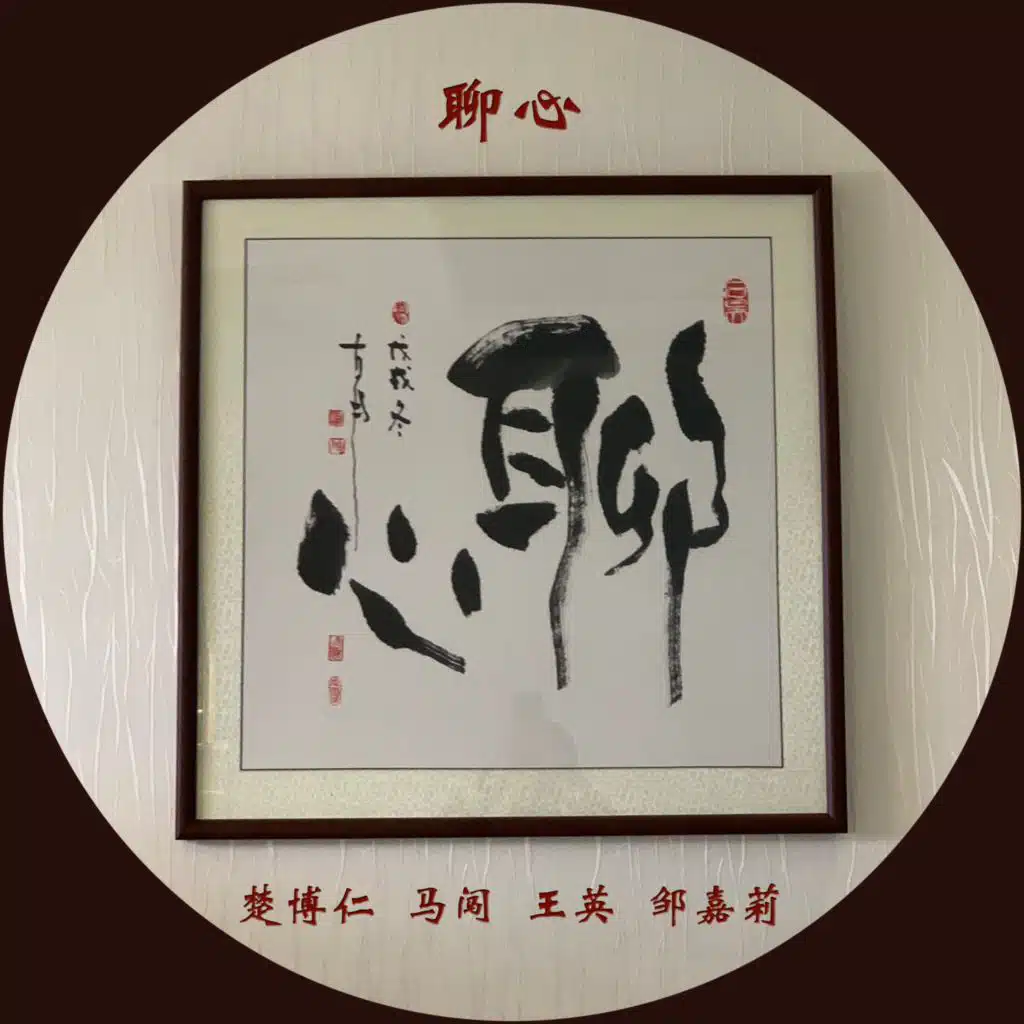 聊心
聊心
戊戌冬
楚博仁 马闯 王英 邹嘉莉